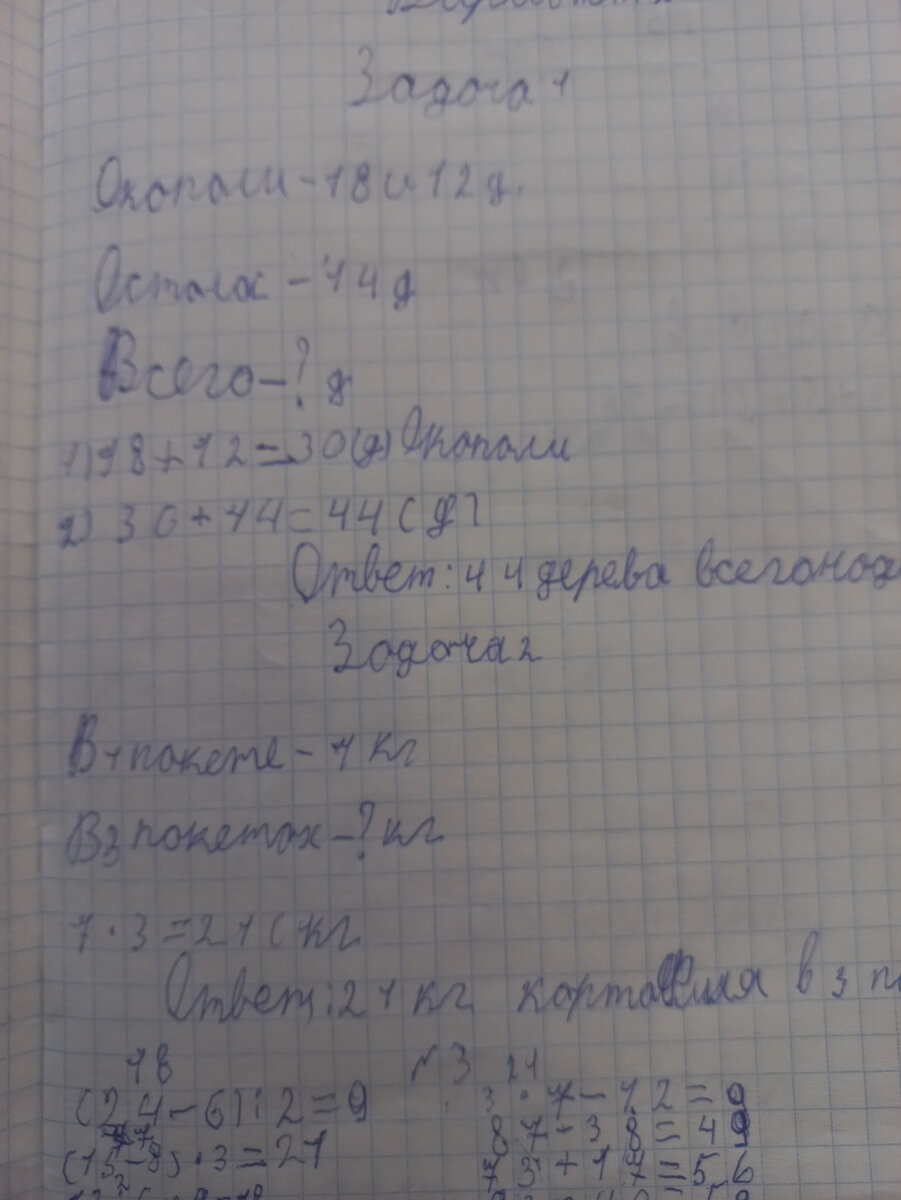 Задача 1
Окопали - 18 и 12 д.
Осталос - 14 д
Всего - ? д
1) 18 + 12 = 30 (д) Окопали
2) 30 + 14 = 44 (д)
Ответ: 44 дерева всего
Задача 2
В 1 пакете - 7 кг
В 3 пакетах - ? кг
7 · 3 = 21 (кг
Ответ: 21 кг картофиля в 3
18 № 3 21
(24 - 6) : 2 = 9 3 · 7 - 12 = 9
87 - 38 = 49
(15 - 8) · 3 = 21
+ 17 = 56